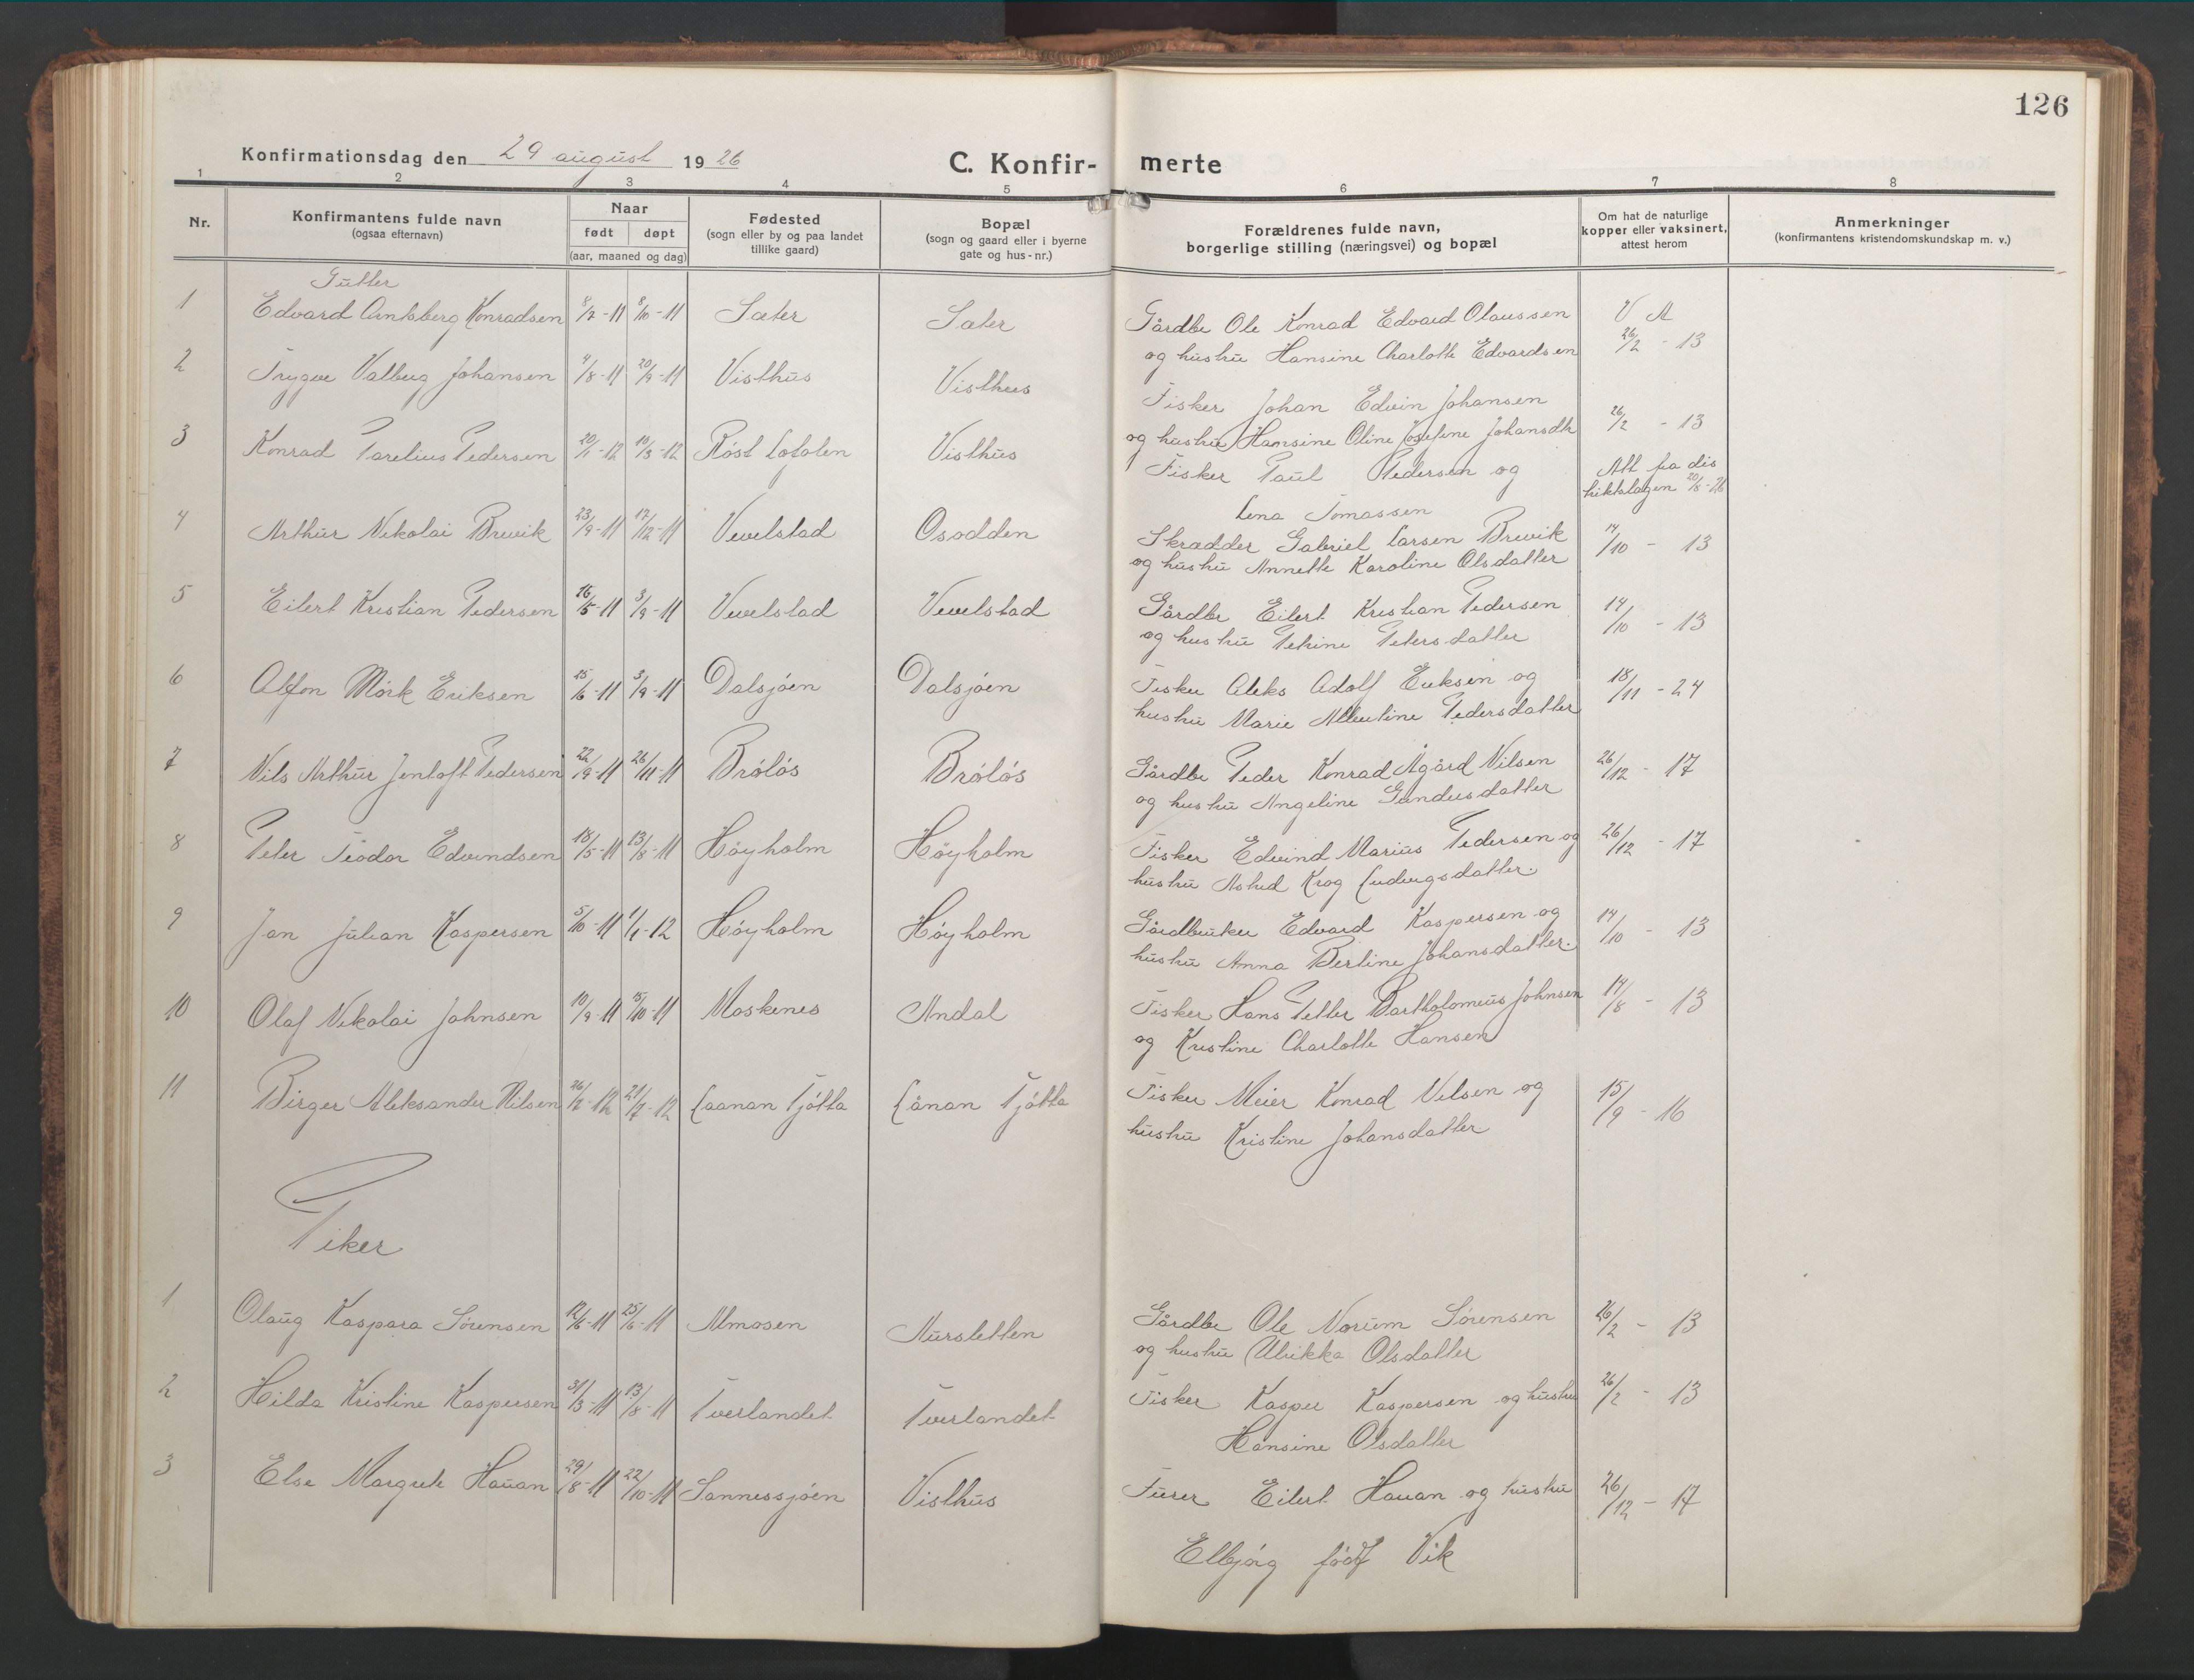 126
Konfirmationsdag den 29 august 1926
C. Konfir-merte
1 2 3 4 5 6 7 8
Nr.
Konfirmantens fulde navn
(ogsaa efternavn)
Naar
født døpt
(aar, maaned og dag)
Fødested
(sogn eller by og paa landet
tillike gaard)
Bopæl
(sogn og gaard eller i byerne
gate og hus-nr.)
Forældrenes fulde navn,
borgerlige stilling (næringsvei) og bopæl
Om hat de naturlige
kopper eller vaksinert,
attest herom
Anmerkninger
(konfirmantens kristendomskundskap m. v.)
Gutter
1 Edvard Arntsberg Konradsen 8/7-11 8/10-11 Sæter Sæter Gårdbr Ole Konrad Edvard Olaussen V A
og hustru Hansine Charlotte Edvardsen 26/2 - 13
2 Trygve Valberg Johansen 4/8-11 20/9-11 Visthus Visthus Fisker Johan Edvin Johansen
og hustru Hansine Oline Josefine Johansdtr 26/2 - 13
3 Konrad Parelius Pedersen 20/1-12 10/3-12 Röst Lofoten Visthus Fisker Paul Pedersen og Att fra dis
Lena Tomassen triktslægen 20/8-26
4 Arthur Nikolai Brevik 23/9-11 17/12-11 Vevelstad Osodden Skrædder Gabriel Larsen Brevik 14/10 - 13
og hustru Annette Karoline Olsdatter
5 Eilert Kristian Pedersen 16/5-11 3/9-11 Vevelstad Vevelstad Gårdbr Eilert Kristian Pedersen 14/10 - 13
og hustru Petrine Petersdatter
6 Alfon Mörk Eriksen 25/6-11 3/9-11 Dalsjöen Dalsjöen Fisker Aleks Adolf Eriksen og 18/11 - 24
hustru Marie Albertine Pedersdatter
7 Nils Arthur Jentoft Pedersen 22/9-11 26/11-11 Brölös Brölös Gårdbr Peder Konrad Ågård Nilsen 26/12 - 17
og hustru Angeline Gundersdatter
8 Peter Teodor Edvindsen 18/5-11 13/8-11 Höyholm Höyholm Fisker Edvind Marius Pedersen og 26/12 - 17
hustru Astrid Krog Ludvigsdatter.
9 Jan Julian Kaspersen 5/10-11 1/1-12 Höyholm Höyholm Gårdbruker Edvard Kaspersen og 14/10 - 13
hustru Anna Bertine Johansdatter.
10 Olaf Nikolai Johnsen 10/9-11 15/10-11 Moskenes Andal Fisker Hans Petter Bartholomeus Johnsen 14/8 - 13
og Kristine Charlotte Hansen
11 Birger Aleksander Nilsen 26/2-12 21/7-12 Laanan Tjötta Lånan Tjötta Fisker Meier Konrad Nilsen og 15/9 - 16
hustru Kristine Johansdatter
Piker
1 Olaug Kaspara Sörensen 12/6-11 25/6-11 Almosen Aursletten Gårdbr Ole Norum Sörensen 26/2 - 13
og hustru Ulrikka Olsdatter
2 Hilda Kristine Kaspersen 31/3-11 13/8-11 Tverlandet Tverlandet Fisker Kasper Kaspersen og hustru 26/2 - 13
Hansine Olsdatter
3 Else Margrete Hauan 29/8-11 22/10-11 Sannessjöen Visthus Furer Eilert Hauan og hustru 26/12 - 17
Elbjörg född Vik